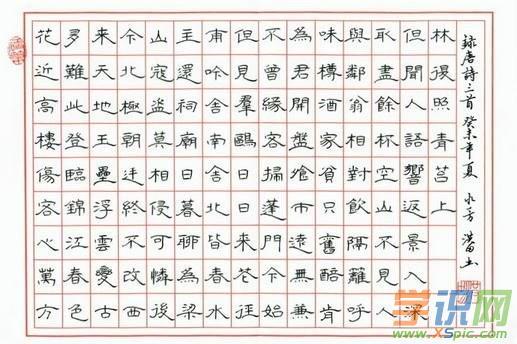 花近高樓傷客心萬方
多難此登臨錦江春色
來天地玉壘浮雲變古
今北極朝廷終不改西
山寇盜莫相侵可憐後
主還祠廟日暮聊為梁
甫吟舍南舍北皆春水
但見羣鷗日日來花徑
不曾緣客掃蓬門今始
為君開盤飧市遠無兼
味樽酒家貧只舊醅肯
與鄰翁相對飲隔籬呼
取盡餘杯空山不見人
但聞人語響返景入深
林復照青苔上
録唐詩三首癸未年夏
学识网
www.XSpic.com